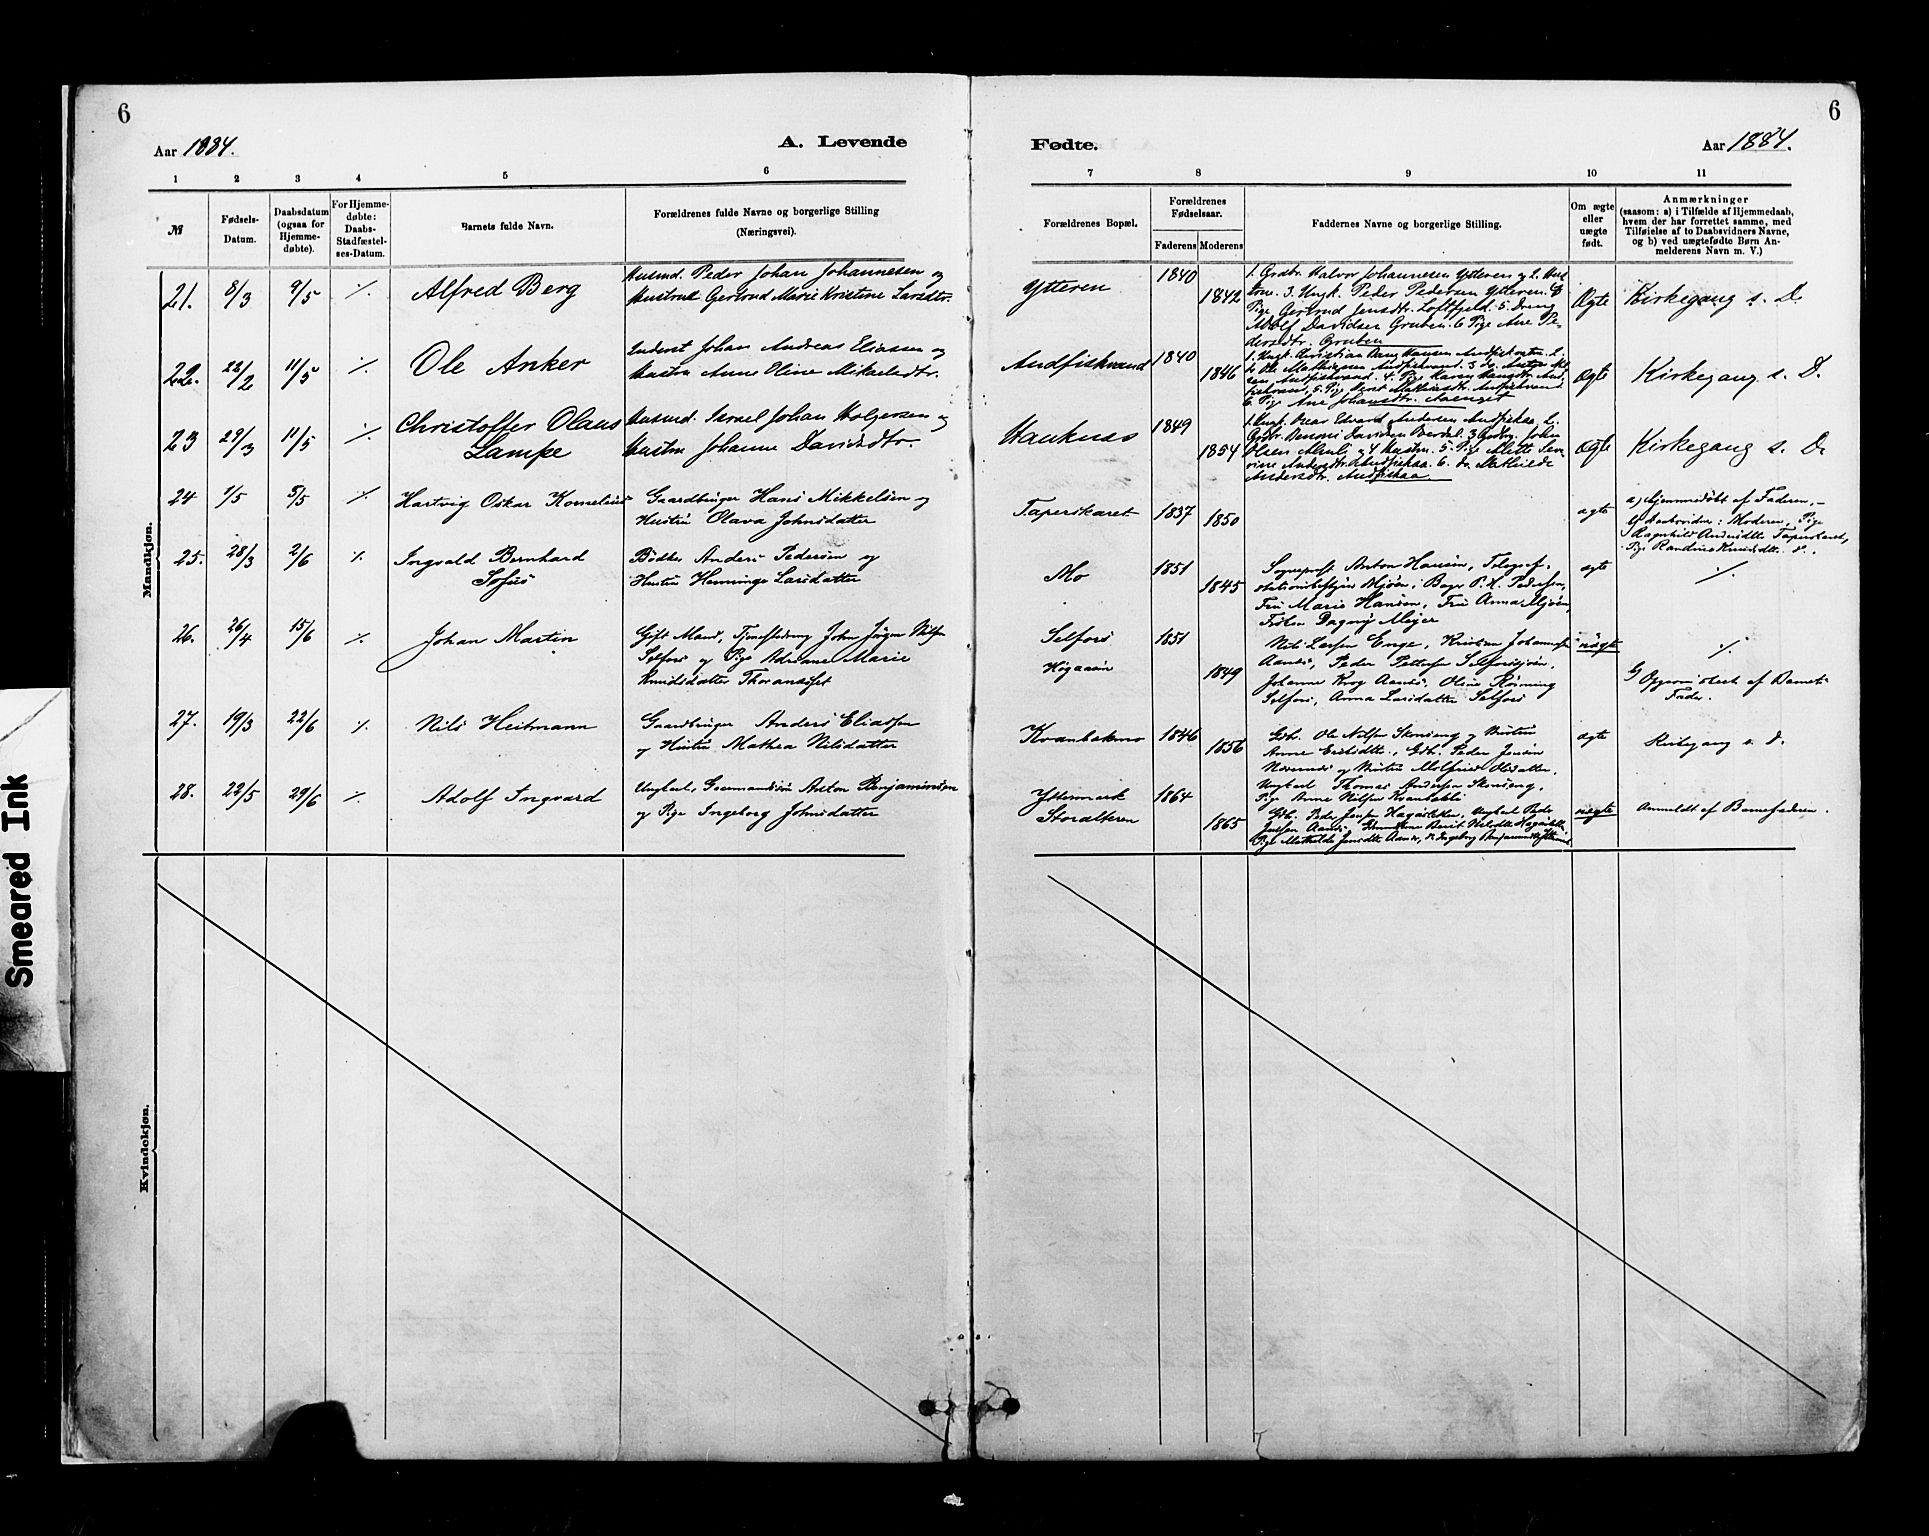 6
6
Aar 1884.
A. Levende
Fødte.
Aar 1884.
1 2 3 4 5 6
7 8 9 10 11
№
Fødsels-
Datum.
Daabsdatum
(ogsaa for
Hjemme-
døbte).
For Hjemme-
døbte:
Daabs-
Stadfæstel-
ses-Datum.
Barnets fulde Navn.
Forældrenes fulde Navne og borgerlige Stilling
(Næringsvei).
Forældrenes Bopæl.
Forældrenes
Fødselsaar.
Faderens Moderens
Faddernes Navne og borgerlige Stilling.
Om ægte
eller
uægte
født.
Anmærkninger
(saasom: a) i Tilfælde af Hjemmedaab,
hvem der har forrettet samme, med
Tilføielse af to Daabsvidners Navne,
og b) ved uægtefødte Børn An-
melderens Navn m. V.)
Mandkjøn.
21. 8/3 9/5 ./. Alfred Berg
Husmd. Peder Johan Johannesen og
Hustrud Gertrud Marie Kristine Larsdtr.
Ytteren 1840 1842
1. Grdbr. Halvor Johannesen Ytteren og 2. Hus
tru. 3. Ungk. Peder Pedersen Ytteren. 4
Pige Gertrud Jensdtr. Loftfjeld. 5. Dreng
Adolf Davidsen Gruben. 6 Pige Ane Pe-
dersdtr. Gruben
Ægte Kirkegang s. D.
22. 22/2 11/5 ./. Ole Anker
Inderst Johan Andreas Eliassen og
Hustru Anne Oline Mikaelsdtr.
Andfiskvand 1840 1846
6 Pige Ane Johansdtr. Aaenget
Ægte Kirkegang s. D.
23 29/3 11/5 ./. Christoffer Olaus
Lampe
Husmd. Israel Johan Holgersen og
Hustru Johanne Davidsdtr.
Hauknes 1849 1854
1. Ungk. Peder Edvard Andersen Andfiskaa 2.
Olsen Alenli og 4 Hustru. 5. Pige Mette Seve
rine Andersdtr. Andfiskaa. 6. do. Mathilde
Andersdtr. Andfiskaa.
Ægte Kirkegang s. D.
24 1/5 5/5 ./. Hartvig Oskar Kornelius
Gaardbruger Hans Mikkelsen og
Hustru Olava Johnsdatter
Taperskaret 1837 1850
ægte
a) Hjemmedøbt af Faderen, –
b) Daabsvidner: Moderen, Pige
Ragnhild Andersdtr Taperskaret,
Pige Randine Knudsdtr. d.
25. 28/3 2/6 ./. Ingvald Bernhard
Sofus
Bødker Anders Pedersen og
Hustru Henninge Larsdatter
Mo 1851 1845
Sogneprest Anton Hansen, Telegraf-
stationsbestyrer Mjøen, Bager P. H. Pedersen,
Fru Marie Hansen, Fru Anna Mjøen,
Frøken Dagny Meyer
ægte ./.
26. 26/4 15/6 ./. Johan Martin
Gift Mand, Tjenestedreng John Jørgen Nilsen
Selfors og Pige Adriane Marie
Knudsdatter Thoraneset
Selfors 1851
Høgaasen 1849
Nils Larsen Enge, Kristian Johannesen
Aanes, Peder Pettersen Selforslien,
Johanne Krog Aanes, Oline Rønning
Selfors, Anna Larsdatter Selfors
uægte ./.
b) Opgivet af Barnets
Fader.
27. 19/3 22/6 ./. Nils Heitmann
Gaardbruger Anders Eliassen
og Hustru Mathea Nilsdatter
Kvanbekmo 1846 1856
Gbr. Ole Nilsen Skonseng og Hustru
Anne Erisdtr., Gbr. Peder Jensen
Næverness og Hustru Molfrid Olsdatter.
ægte Kirkegang s. d.
28. 22/5 29/6 ./. Adolf Ingvard
Ungkarl, Anton Benjaminsen
og Pige Ingeborg Johnsdatter
Yttermark 1864
Storalteren 1865
Ungkarl Thomas Andersen Skonseng,
Pige Anne Nilsen Kvanbekli
uægte Anmeldt af Barnefaderen.
Kvindekjøn.
Smeared Ink